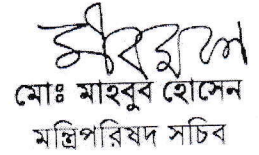 মোঃ মাহবুব হোসেন
মন্ত্রিপরিষদ সচিব